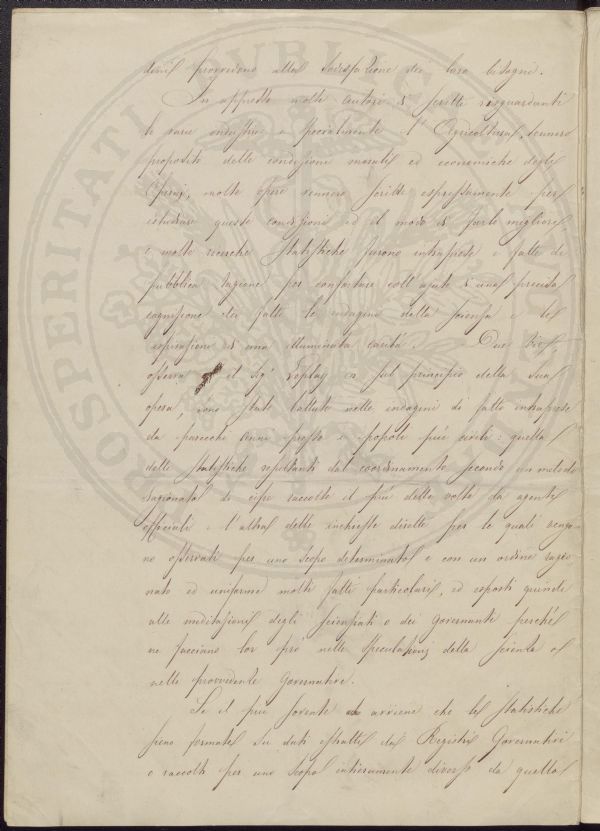 provvedono alla sodisfazione dei loro bisogni.
In appresso molti autori di scritti risguardanti
le varie industrie e specialmente l'Agricoltura, tennero
proposito delle condizioni morali ed economiche degli
Operai, molte opere vennero scritte espressamente per
istudiare queste condizioni ed il modo di farle migliori,
e molte ricerche statistiche furono intraprese e fatte di
pubblica ragione per confortare coll'ajuto di una precisa
cognizione dei fatti le indagini della scienza e le
ispirazioni di una illuminata carità. Due vie,
osserva il Sig.r Leplay in sul principio della sua
opera, sono state battute nelle indagini di fatto intraprese
da parecchi anni presso i popoli più civili: quella
delle statistiche risultanti dal coordinamento secondo un metodo
razionale di cifre raccolte il più delle volte da agenti
officiali e l'altra delle inchieste dirette per le quali vengo-
no osservati per uno scopo determinato e con un ordine ragio-
nato ed uniforme molti fatti particolari, ed esposti quindi
alle meditazioni degli scienziati o dei governanti perché
ne facciano lor prò nelle speculazioni della scienza o
nelle provvidenze governative.
Se il più sovente avviene che le statistiche
sieno formate su dati estratti dai Registri Governativi
e raccolti per uno scopo intieramente diverso da quello
PROSPERITATI PVBLICAE